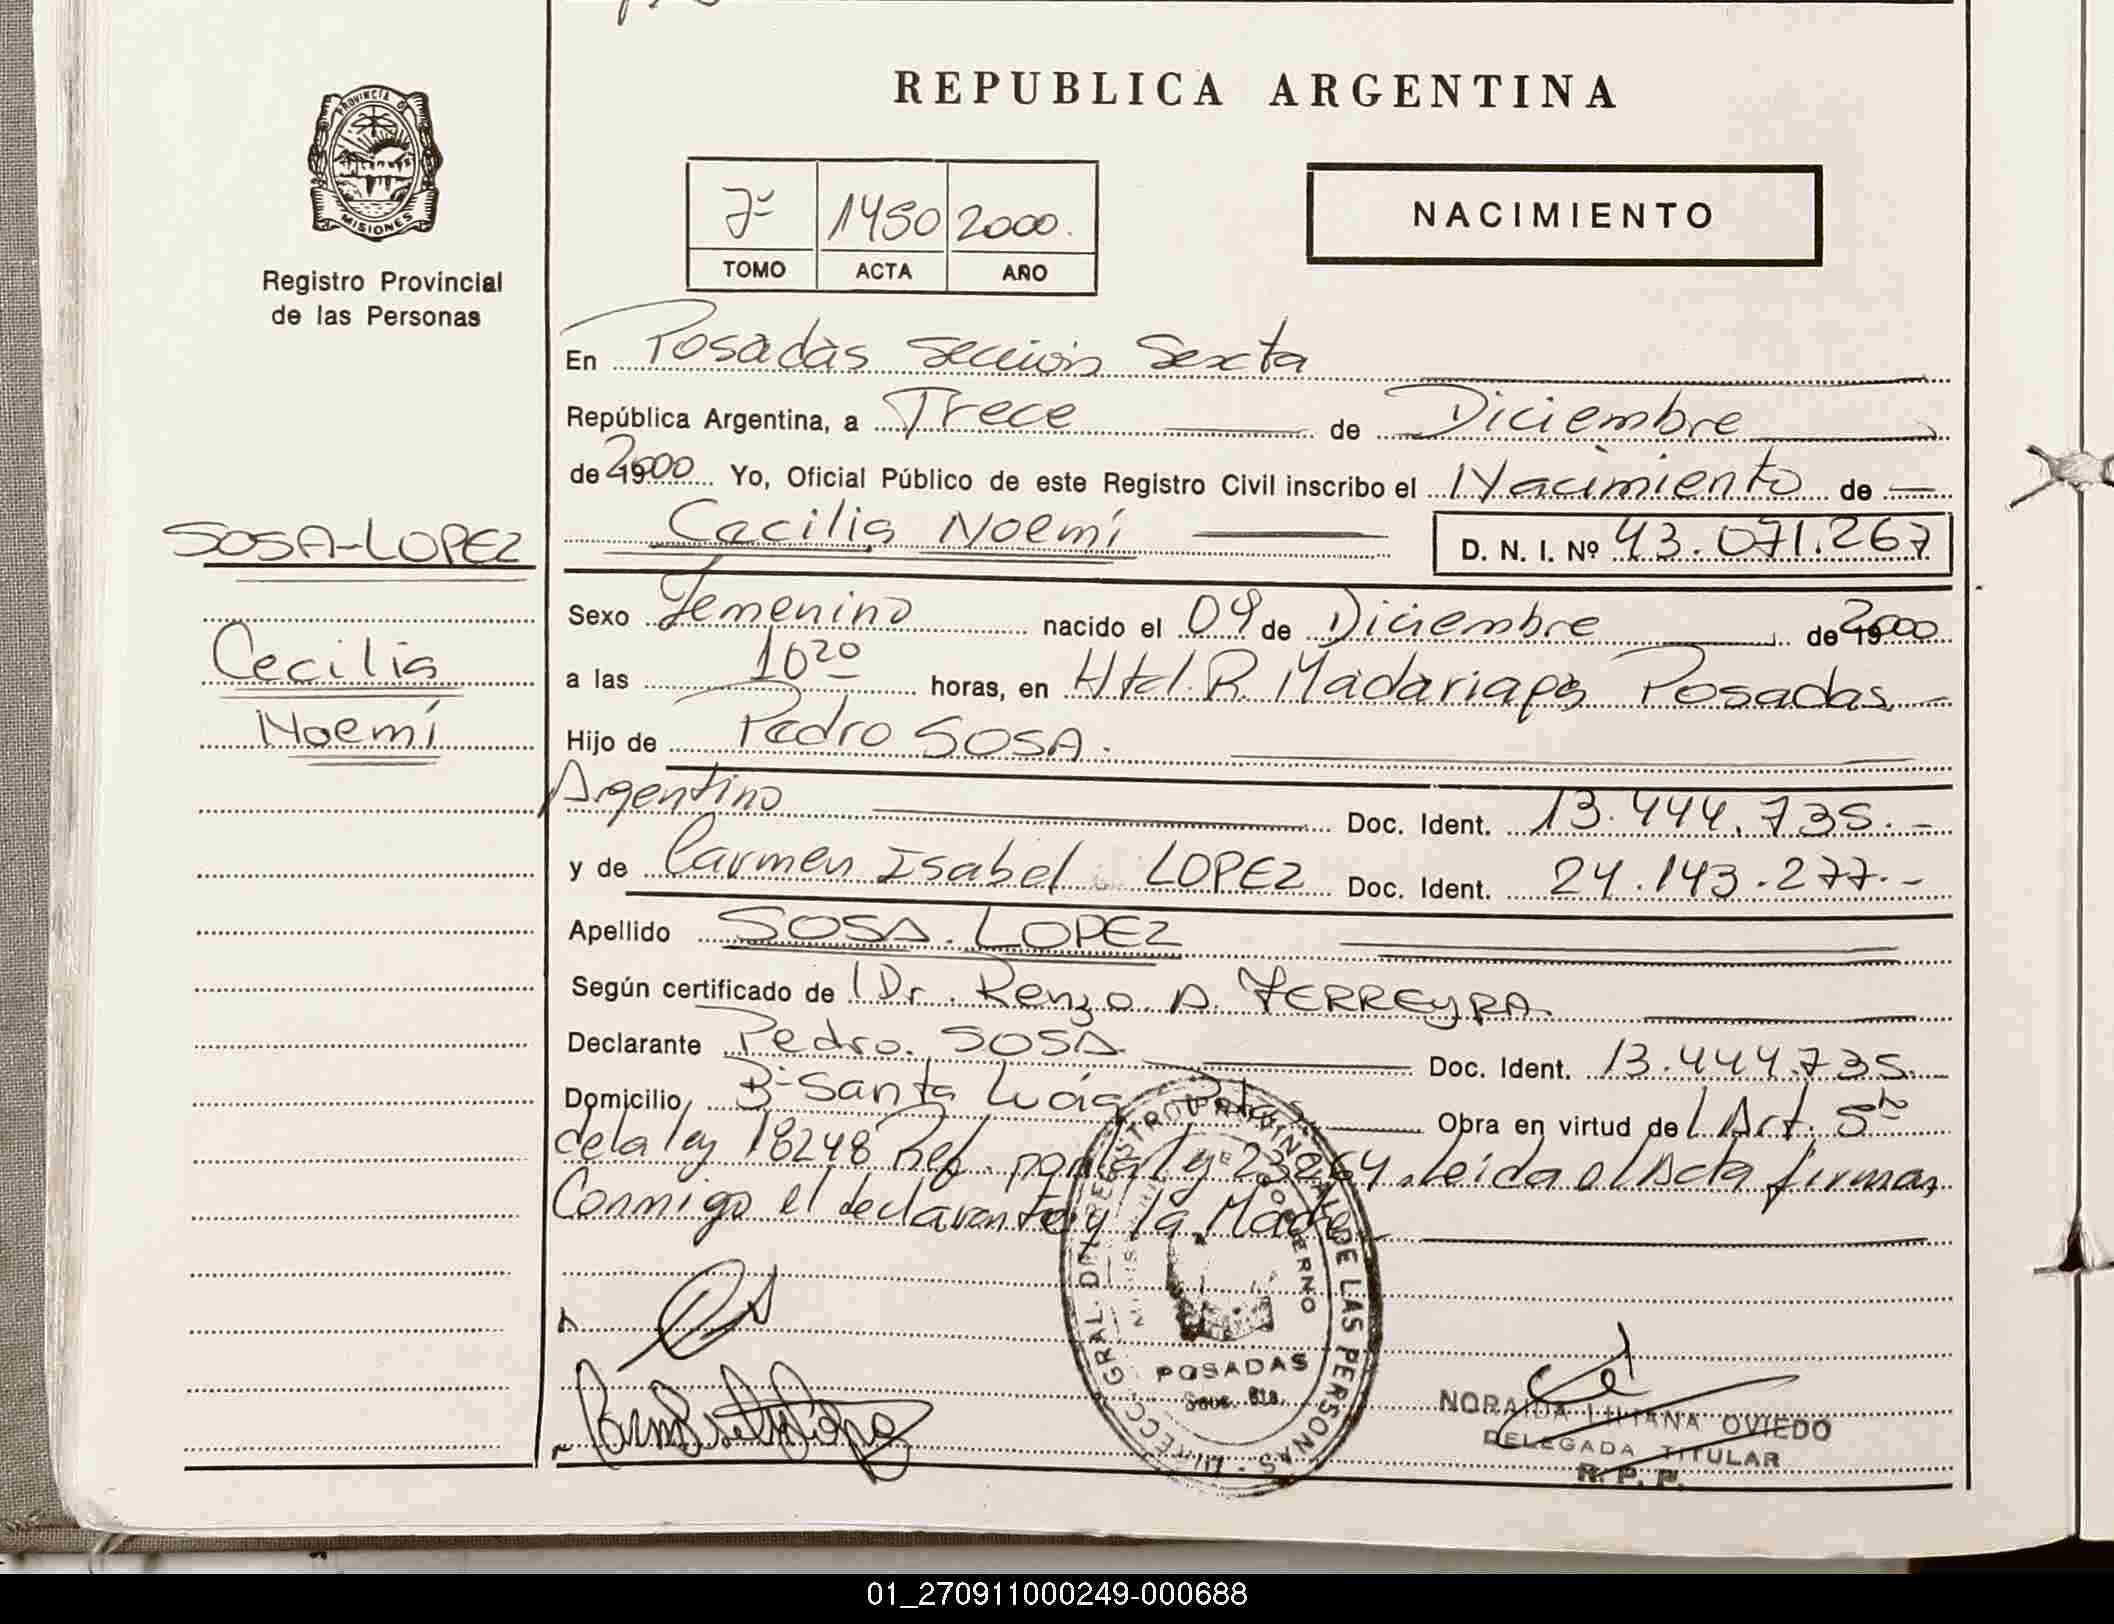 REPUBLICA ARGENTINA
PROVINCIA D
MISIONES
Registro Provincial
de las Personas
7º 1450 2000.
TOMO ACTA AÑO
NACIMIENTO
En Posadas Sección Sexta
República Argentina, a Trece de Diciembre
de 2000 Yo, Oficial Público de este Registro Civil inscribo el Nacimiento de
SOSA-LOPEZ
Cecilia Noemí D. N. I. Nº 43.071.267
Sexo Femenino nacido el 09 de Diciembre de 2000
Cecilia
a las 10 20 horas, en Htal. R Madariaga Posadas
Noemí
Hijo de Pedro SOSA.
Argentino Doc. Ident. 13.444.735.-
y de Carmen Isabel LOPEZ Doc. Ident. 24.143.277.-
Apellido SOSA. LOPEZ
Según certificado de l Dr. Renzo. A. FERREYRA.
Declarante Pedro. SOSA Doc. Ident. 13.444.735.
Domicilio Bº Santa Lucía Pdas Obra en virtud de l Art. 5to
de la ley 18248 Ref. por la ley 23264. Leída el Acta firman
Conmigo el declarante y la Madre
DIRECC. GRAL. DEL REGISTRO PROVINCIAL DE LAS PERSONAS
GOBIERNO
POSADAS
Secc. 6ta.
NORAIDA LILIANA OVIEDO
DELEGADA TITULAR
R. P. P.
01_270911000249-000688